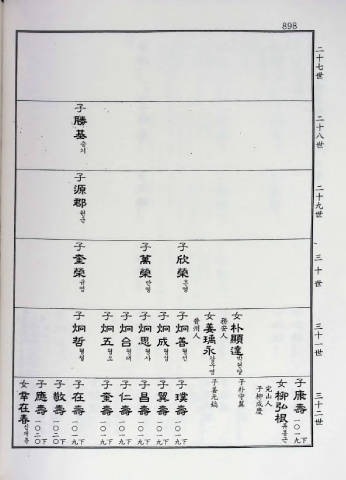 898
二十七世
二十八世
子 勝基 승기
二十九世
子 源郡 원군
三十世
子 欣榮 흔영
子 萬榮 만영
子 奎榮 규영
三十一世
女 朴顯達 박현달
務安人
子朴守翼
女 姜瑀永 강우영
晉州人
子姜元鎬
子 炯善 형선
子 炯成 형성
子 炯思 형사
子 炯台 형태
子 炯五 형오
子 炯哲 형철
三十二世
子 康壽 一〇一九下
女 柳弘根 류홍근
完山人
子柳成慶
子 璞壽 一〇一九下
子 翼壽 一〇一九
子 昌壽 一〇一九
子 仁壽 一〇一九
子 奎壽 一〇一九
子 在壽 一〇一九下
子 敬壽 一〇二〇
子 應壽 一〇二〇下
女 韋在春